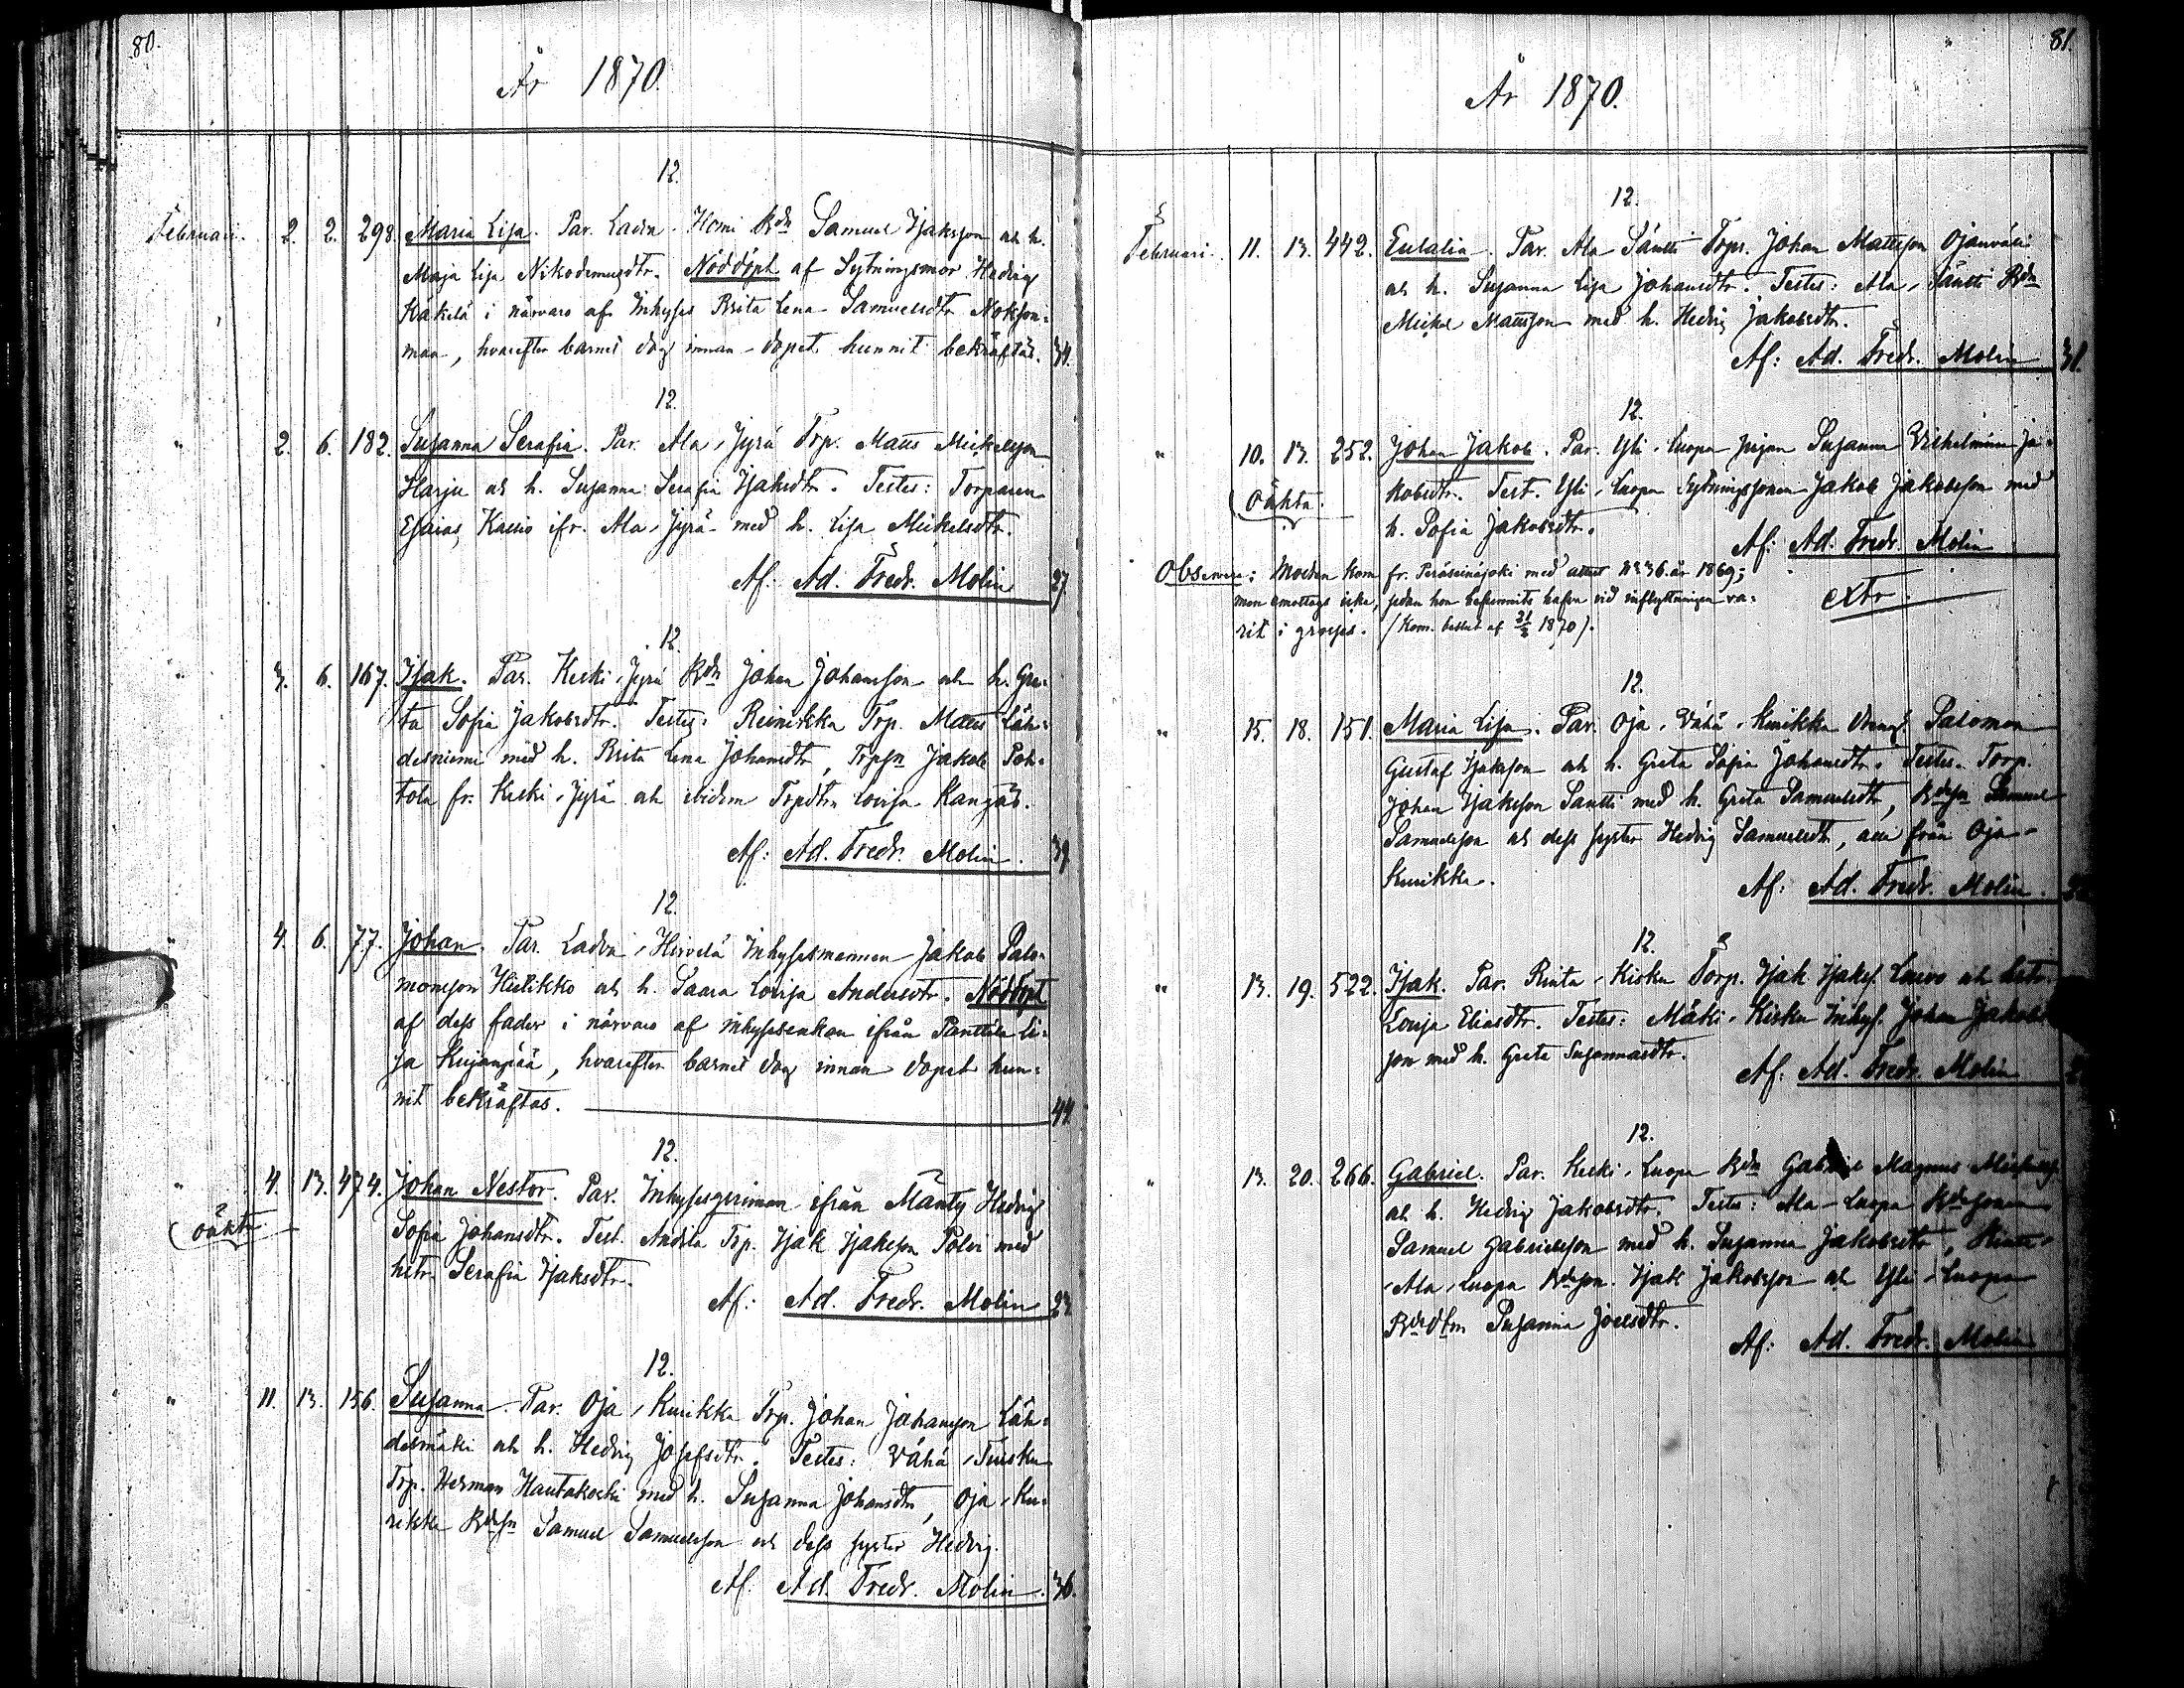 80.
År 1870.
12.
Februari. 2. 2. 298. Maria Lisa. Par. Ladva-Homi Bdn Samuel Isaksson och h.
Maja Lisa Nikodemusdtr. Nöddöpt af Sytningsmor Hedvig
Käkelä i närvaro af Inhyses Brita Lena Samuelsdtr
man, hvarefter barnet dog innan dopet hunnit bekräftas. 34.
12.
" 2. 6. 182. Susanna Serafia. Par. Ala-Jyrä Trp. Matts Mickelsson
Harju och h. Susanna Serafia Isaksdtr. Testes: Torparen
Esaias Kallio ifr. Ala-Jyrä med h. Lisa Mickelsdtr.
Af: Ad. Fredr. Molin 27.
12.
" 3. 6. 167. Isak. Par. Keski-Jyrä Bdn Johan Johansson och h. Gre-
ta Sofia Jakobsdtr. Testes: Reinikka Trp. Matts Läh-
desniemi med h. Brita Lena Johansdtr, Trpsn Jakob Poh-
tola fr. Keski-Jyrä och ibidem Trpdtrn Lovisa Kangas.
Af: Ad. Fredr. Molin. 39.
12.
" 4. 6. 77. Johan. Par. Ladva-Hirvelä Inhysesmannen Jakob Salo-
monsson och h. Saara Lovisa Andersdtr. Nöddöpt
af dess fader i närvaro af inhysesenkan ifrån Panttila Li-
sa Kujanpää, hvarefter barnet dog innan dopet hun-
nit bekräftas. 44.
12.
" 4. 13. 474. Johan Nestor. Par. Inhysesqvinnan ifrån Mänty Hedvig
oäkta
Sofia Johansdtr. Test. Andila Trp. Isak Isaksson Polvi med
hstr. Serafia Isaksdtr.
Af: Ad. Fredr. Molin 23.
12.
" 11. 13. 156. Susanna. Par. Oja-Kurikka Trp. Johan Johansson Läh-
desmäki och h. Hedvig Josefsdtr. Testes: Vähä-Tuisku
Trp. Herman Hautakoski med h. Susanna Johansdtr, Oja-Ku-
rikka Bdesn Samuel Samuelsson och dess syster Hedvig.
Af: Ad. Fredr. Molin. 36.
81.
År 1870.
12.
Februari. 11. 13. 442. Eulalia. Par. Ala-Säntti Trpr. Johan Mattsson Ojanväli
och h. Susanna Lisa Johansdtr. Testes: Ala-Säntti Bdn
Mickel Mattsson med h. Hedvig Jakobsdtr.
Af: Ad. Fredr. Molin 31.
12.
" 10. 13. 252. Johan Jakob. Par. Yli-Luopa pigan Susanna Vilhelmina Ja-
oäkta.
kobsdtr. Test. Yli-Luopa Sytningssonen Jakob Jakobsson med
h. Sofia Jakobsdtr.
Af: Ad. Fredr. Molin
Observera: Modren kom fr. Peräseinäjoki med attest № 36 år 1869;
men emottogs icke, sedan hon befunnits hafva vid inflyttningen va-
rit i grossess. (Kom. beslut af 21/3 1870).
extr.
12.
" 15. 18. 151. Maria Lisa. Par. Oja-Vähä-Kurikka Salomon
Gustaf Isaksson och h. Greta Sofia Johansdtr. Testes. Torp.
Johan Isaksson Santti med h. Greta Samuelsdtr, Bdesn Samuel
Samuelsson och dess syster Hedvig Samuelsdtr, alla från Oja-
Kurikka.
Af: Ad. Fredr. Molin.
12.
" 13. 19. 522. Isak. Par. Rinta-Kisku Torp. Isak Isakss. och hstr.
Lovisa Eliasdtr. Testes: Mäki-Kisku Inhys. Johan Jakobs-
son med h. Greta Susannasdtr.
Af: Ad. Fredr. Molin
12.
" 13. 20. 266. Gabriel. Par. Keski-Luopa Bdn Gabriel Magnus Mickelss.
och h. Hedvig Jakobsdtr. Testes: Ala-Luopa Bdesonen
Samuel Gabrielsson med h. Susanna Jakobsdtr,
Ala-Luopa Bdeson. Isak Jakobsson och Yli-Luopa
Bdedtrn Susanna Joelsdtr.
Af: Ad. Fredr. Molin